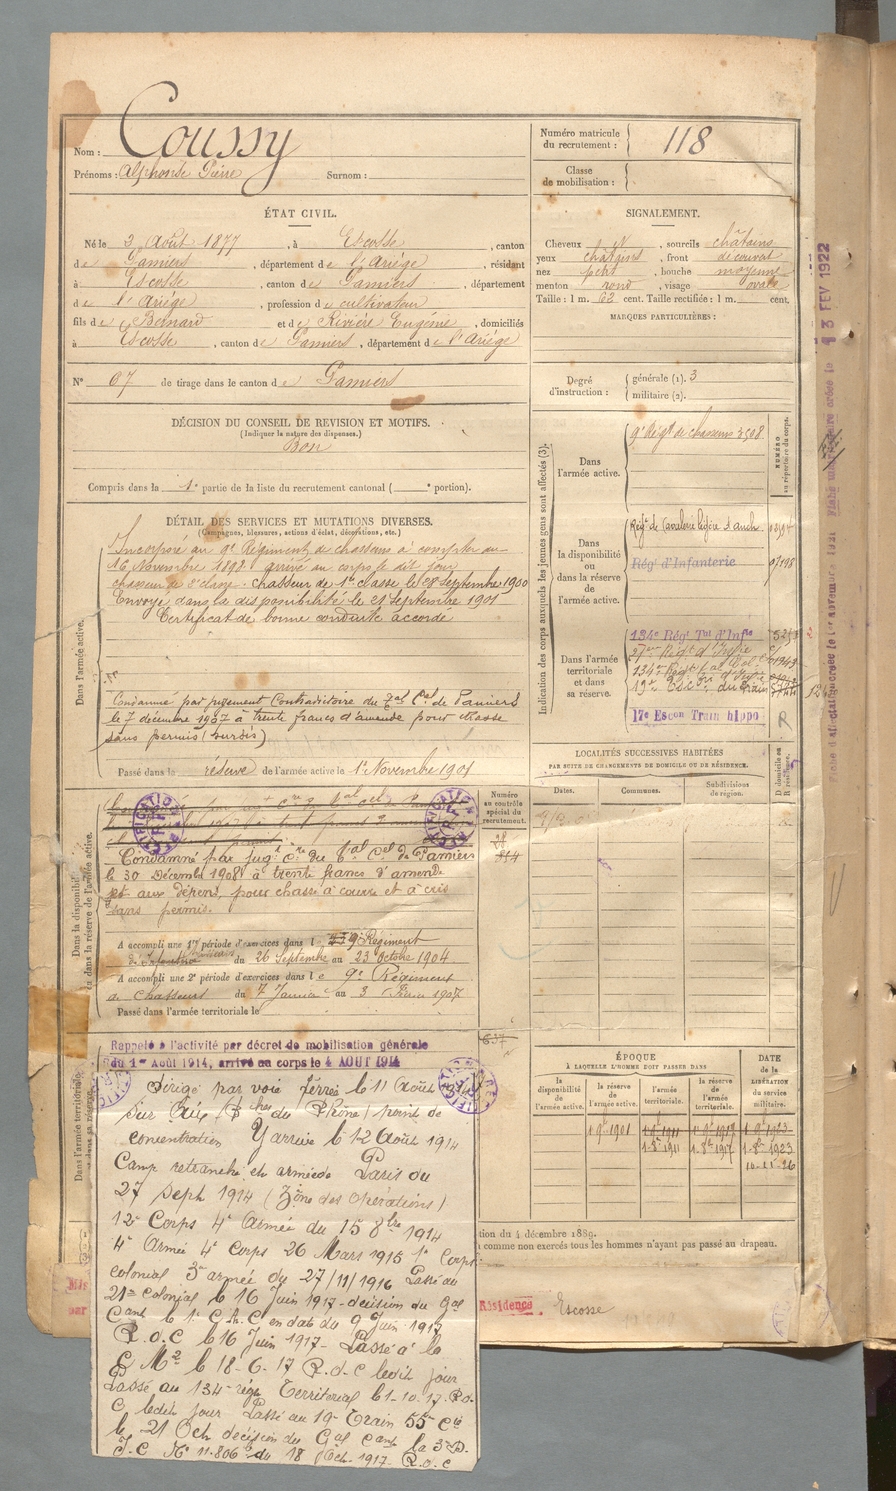 Nom : Coussy
Prénoms : Alphonse Pierre Surnom :
Numéro matricule du recrutement : 118
Classe de mobilisation :
ÉTAT CIVIL.
Né le 3 Août 1877, à Escosse, canton
de Pamiers, département de l'Ariège, résidant
à Escosse, canton de Pamiers, département
de l'Ariège, profession de cultivateur
fils de Bernard et de Rivière Eugénie, domiciliés
à Escosse, canton de Pamiers, département de l'Ariège
N° 67 de tirage dans le canton de Pamiers
SIGNALEMENT.
Cheveux N, sourcils châtains
yeux châtains, front découvert
nez petit, bouche moyenne
menton rond, visage ovale
Taille : 1 m. 62 cent. Taille rectifiée : 1 m. cent.
MARQUES PARTICULIÈRES :
Degré d'instruction : générale (1). 3
militaire (2).
DÉCISION DU CONSEIL DE REVISION ET MOTIFS.
(Indiquer la nature des dispenses.)
Bon
Compris dans la 1e partie de la liste du recrutement cantonal ( e portion).
DÉTAIL DES SERVICES ET MUTATIONS DIVERSES.
(Campagnes, blessures, actions d'éclat, décorations, etc.)
Dans l'armée active.
Incorporé au 9e Régiment de chasseurs à compter du
16 Novembre 1898 arrivé au corps le dit jour
chasseur de 2e classe. Chasseur de 1re classe le 28 septembre 1900
Envoyé dans la disponibilité le 21 Septembre 1901
Certificat de bonne conduite accordé
Condamné par jugement Contradictoire du Bal Cel de Pamiers
le 7 décembre 1907 à trente francs d'amende pour chasse
sans permis (sursis)
Passé dans la réserve de l'armée active le 1er Novembre 1901
Condamné par jugt cre du bal cel de Pamiers
le 30 Décembre 1908 à trente francs d'amende
et aux dépens, pour chasse à courre et à cris
sans permis.
A accompli une 1re période d'exercices dans le 9e Régiment
de Chasseurs du 26 Septembre au 23 Octobre 1904
A accompli une 2e période d'exercices dans le 9e Régiment
de Chasseurs du 7 Janvier au 3 Février 1907
Passé dans l'armée territoriale le
Rappelé à l'activité par décret de mobilisation générale
du 1er Août 1914, arrivé au corps le 4 AOUT 1914
Dirigé par voie ferrée le 11 août
sur Aix (Bches du Rhône) point de
concentration Y arrive le 12 Août 1914
Camp retranché et armée de Paris du
27 Sept 1914 (Zône des opérations)
12e Corps 4e Armée du 15 8bre 1914
4e Armée 4e Corps 26 Mars 1915 1er Corps
colonial 3e armée du 27/11/1916 Passé au
21e colonial le 16 Juin 1917 - décision du Gal
Cant le 1er C.A.C en date du 9 Juin 1917
R.d.C le 16 Juin 1917 - Passé à la
C M2 le 18-6-17 R.d.C ledit jour
Passé au 134e régt Territorial le 1-10-17. R.d.
C ledit jour Passé au 19e Train 55e Cie
le 21 Oct décision du Gal Cant la 3e D.
I.C N° 11.806 du 18 Oct. 1917. R.d.C
Numéro au contrôle spécial du recrutement.
28
637
Indication des corps auxquels les jeunes gens sont affectés (3).
NUMÉRO au répertoire du corps.
Dans l'armée active.
9e Régt de chasseurs 3508
Dans la disponibilité ou dans la réserve de l'armée active.
Régt de Cavalerie légère
Régt d'Infanterie 07198
Dans l'armée territoriale et dans sa réserve.
134e Régt Tal d'Infie
19e Escon du Train
17e Escon Train hippo R
LOCALITÉS SUCCESSIVES HABITÉES
PAR SUITE DE CHANGEMENTS DE DOMICILE OU DE RÉSIDENCE.
D domicile ou R résidence.
Dates. Communes. Subdivisions de région.
ÉPOQUE
À LAQUELLE L'HOMME DOIT PASSER DANS
la disponibilité de l'armée active. la réserve de l'armée active. l'armée territoriale. la réserve de l'armée territoriale.
DATE de la LIBÉRATION du service militaire.
1 9e 1901 1 9e 1911 1 9e 1917 1 9e 1923
1-8e 1911 1-8e 1917 1-8e 1923
10-11-26
tion du 4 décembre 1889.
comme non exercés tous les hommes n'ayant pas passé au drapeau.
Résidence Escosse
13 FEV 1922